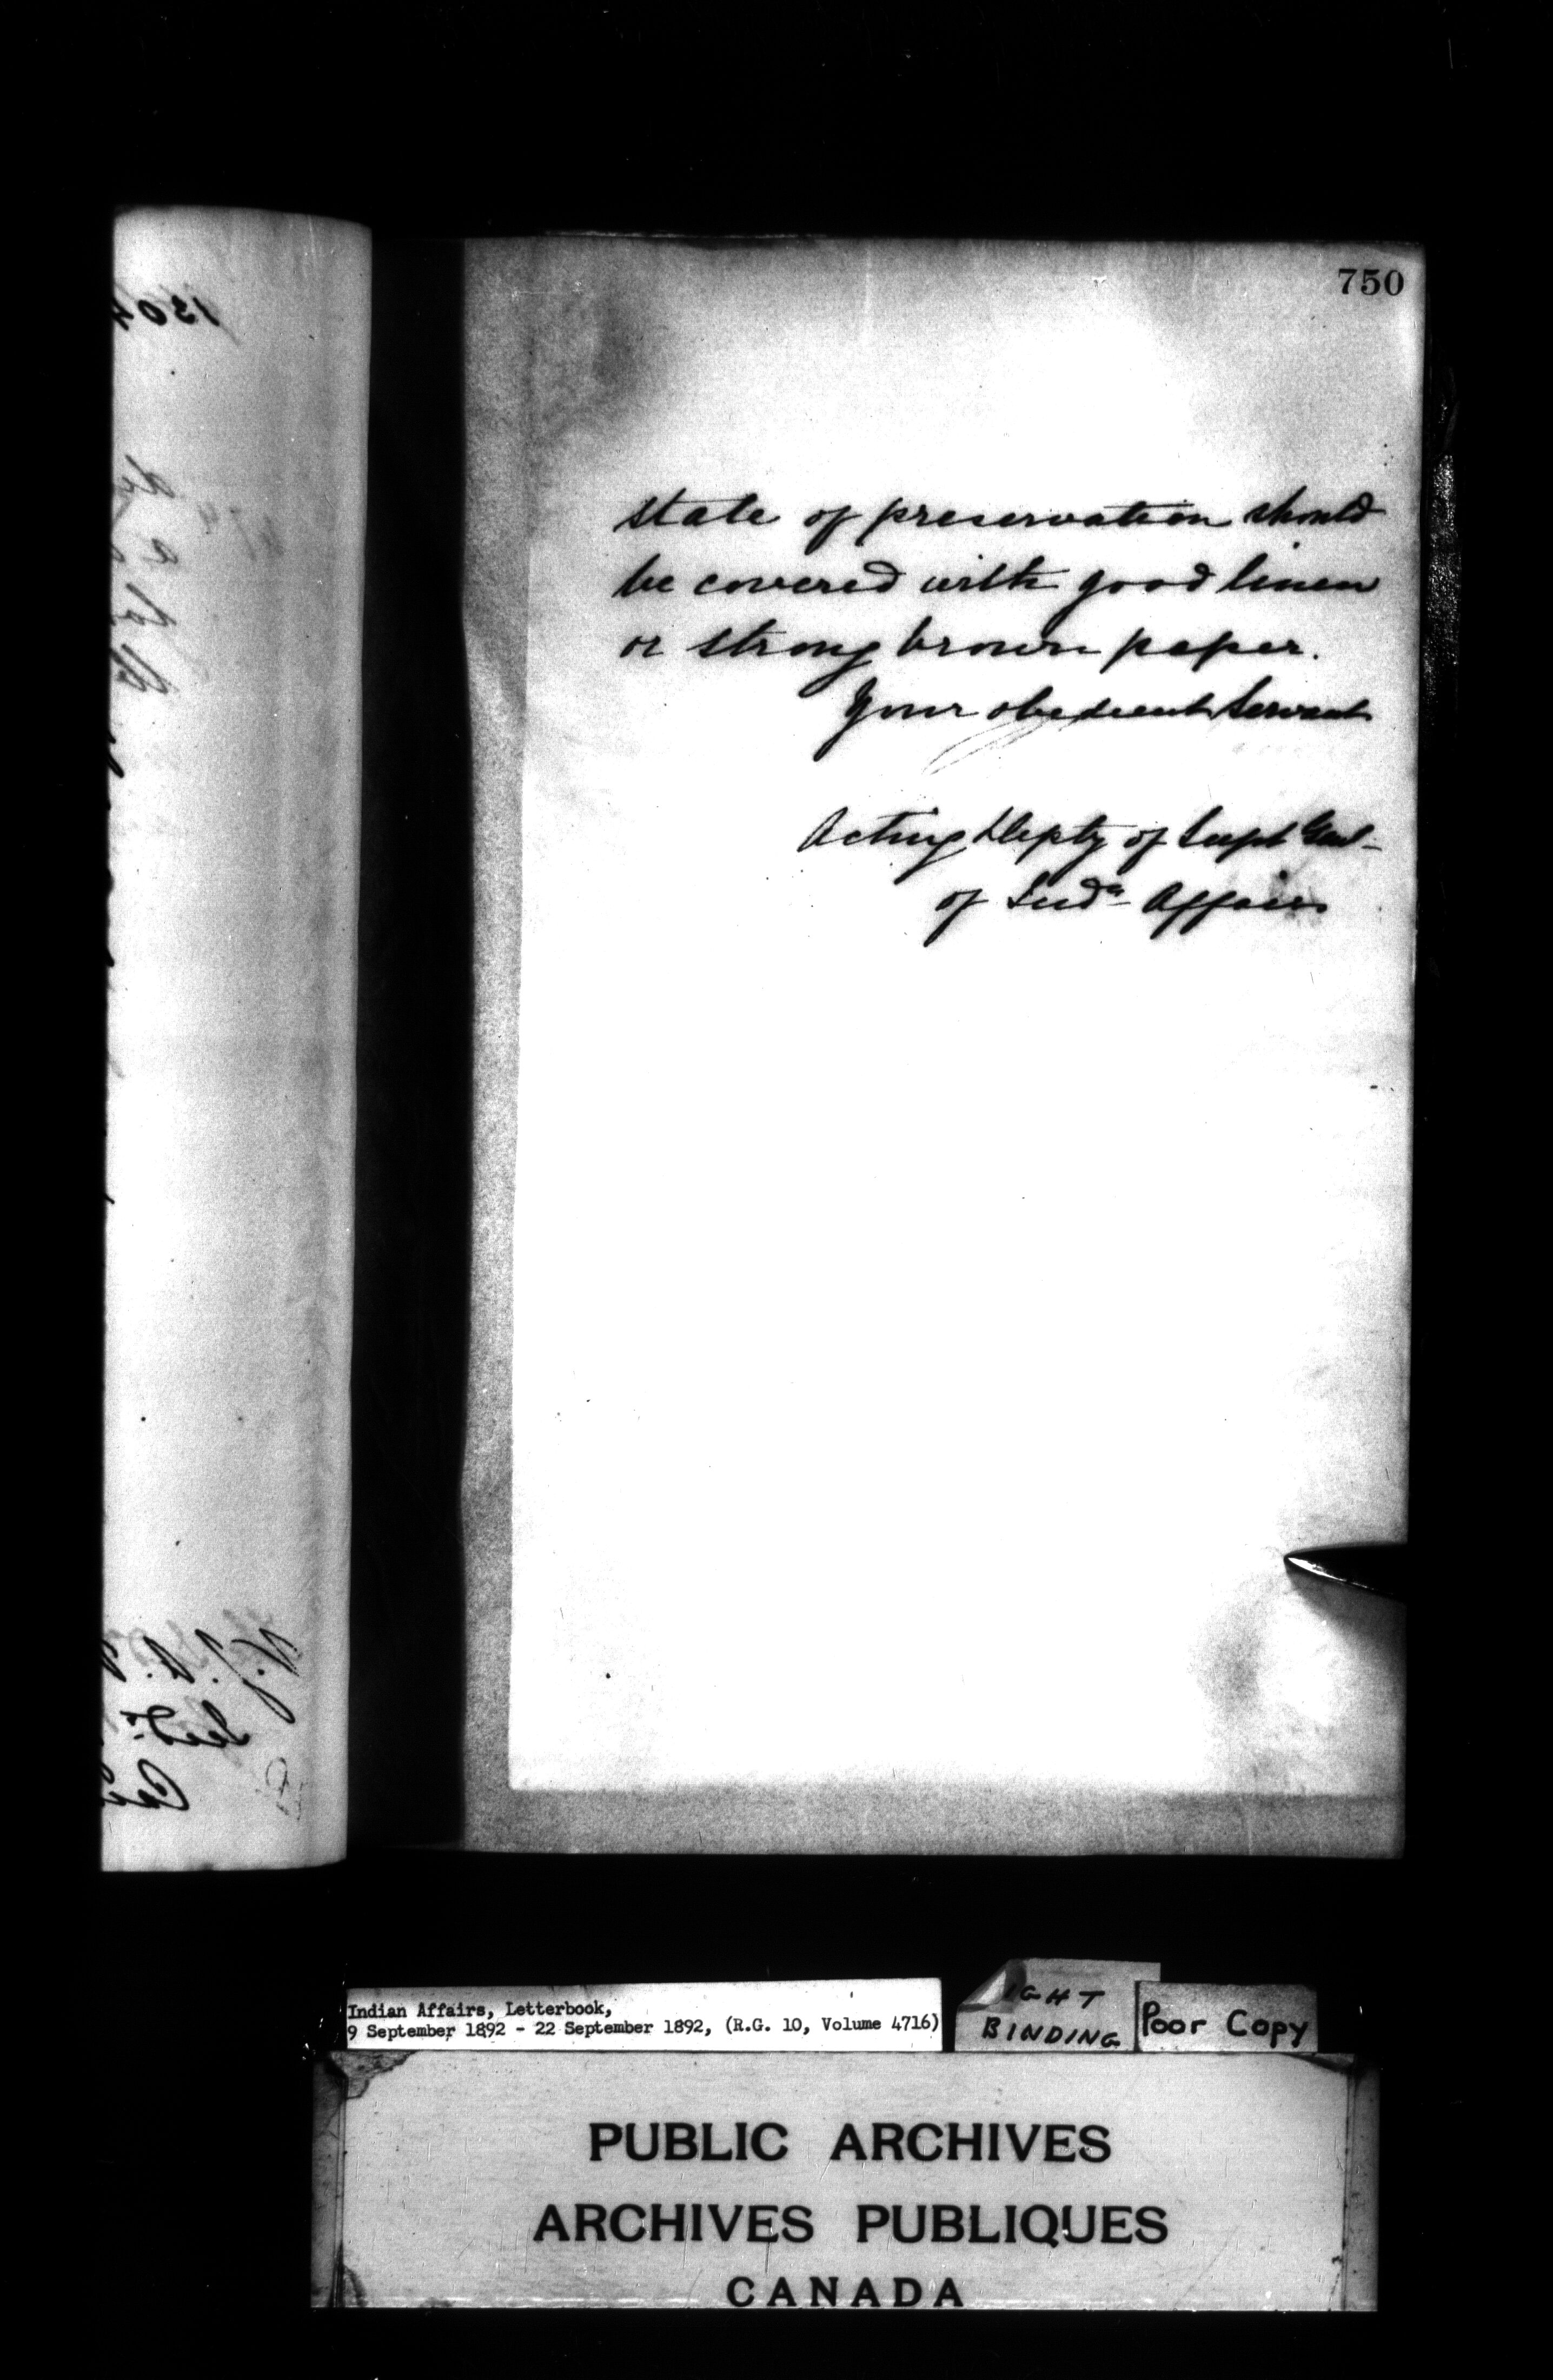 750
state of preservation should
be covered with good linen
or strong brown paper.
Your obedient Servant
Acting Depty of Supt Genl-
of Indn Affairs
Indian Affairs, Letterbook,
9 September 1892 - 22 September 1892, (R.G. 10, Volume 4716)
IGHT
BINDING
Poor Copy
PUBLIC ARCHIVES
ARCHIVES PUBLIQUES
CANADA